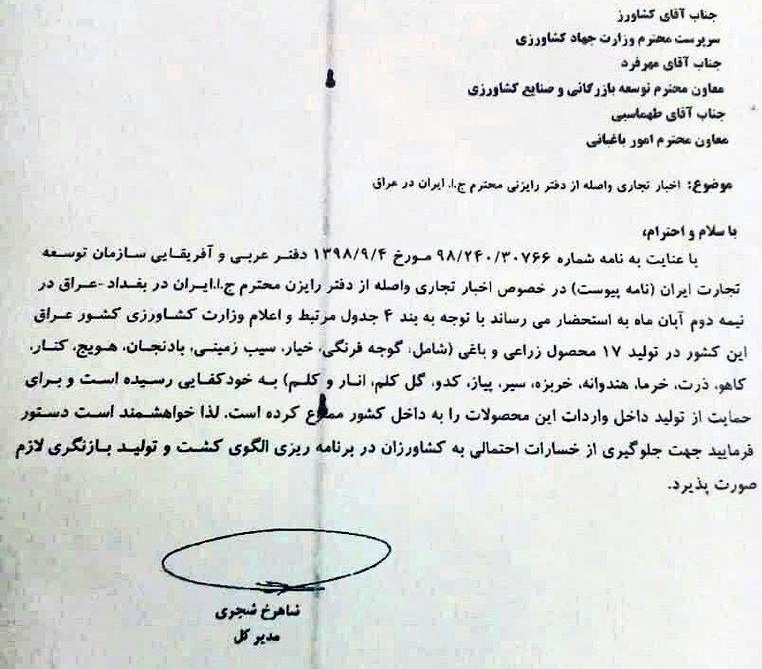 جناب آقای کشاورز
سرپرست محترم وزارت جهاد کشاورزی
جناب آقای مهرفرد
معاون محترم توسعه بازرگانی و صنایع کشاورزی
جناب آقای طهماسبی
معاون محترم امور باغبانی
موضوع: اخبار تجاری واصله از دفتر رایزنی محترم ج.ا. ایران در عراق
با سلام و احترام،
با عنایت به نامه شماره ۹۸/۲۴۰/۳۰۷۶۶ مورخ ۱۳۹۸/۹/۴ دفتر عربی و آفریقایی سازمان توسعه
تجارت ایران (نامه پیوست) در خصوص اخبار تجاری واصله از دفتر رایزن محترم ج.ا.ایران در بغداد -عراق در
نیمه دوم آبان ماه به استحضار می رساند با توجه به بند ۴ جدول مرتبط و اعلام وزارت کشاورزی کشور عراق
این کشور در تولید ۱۷ محصول زراعی و باغی (شامل: گوجه فرنگی، خیار، سیب زمینی، بادنجان، هویج، کنار،
کاهو، ذرت، خرما، هندوانه، خربزه، سیر، پیاز، کدو، گل کلم، انار و کلم) به خودکفایی رسیده است و برای
حمایت از تولید داخل واردات این محصولات را به داخل کشور ممنوع کرده است. لذا خواهشمند است دستور
فرمایید جهت جلوگیری از خسارات احتمالی به کشاورزان در برنامه ریزی الگوی کشت و تولید بازنگری لازم
صورت پذیرد.
شاهرخ شجری
مدیر کل